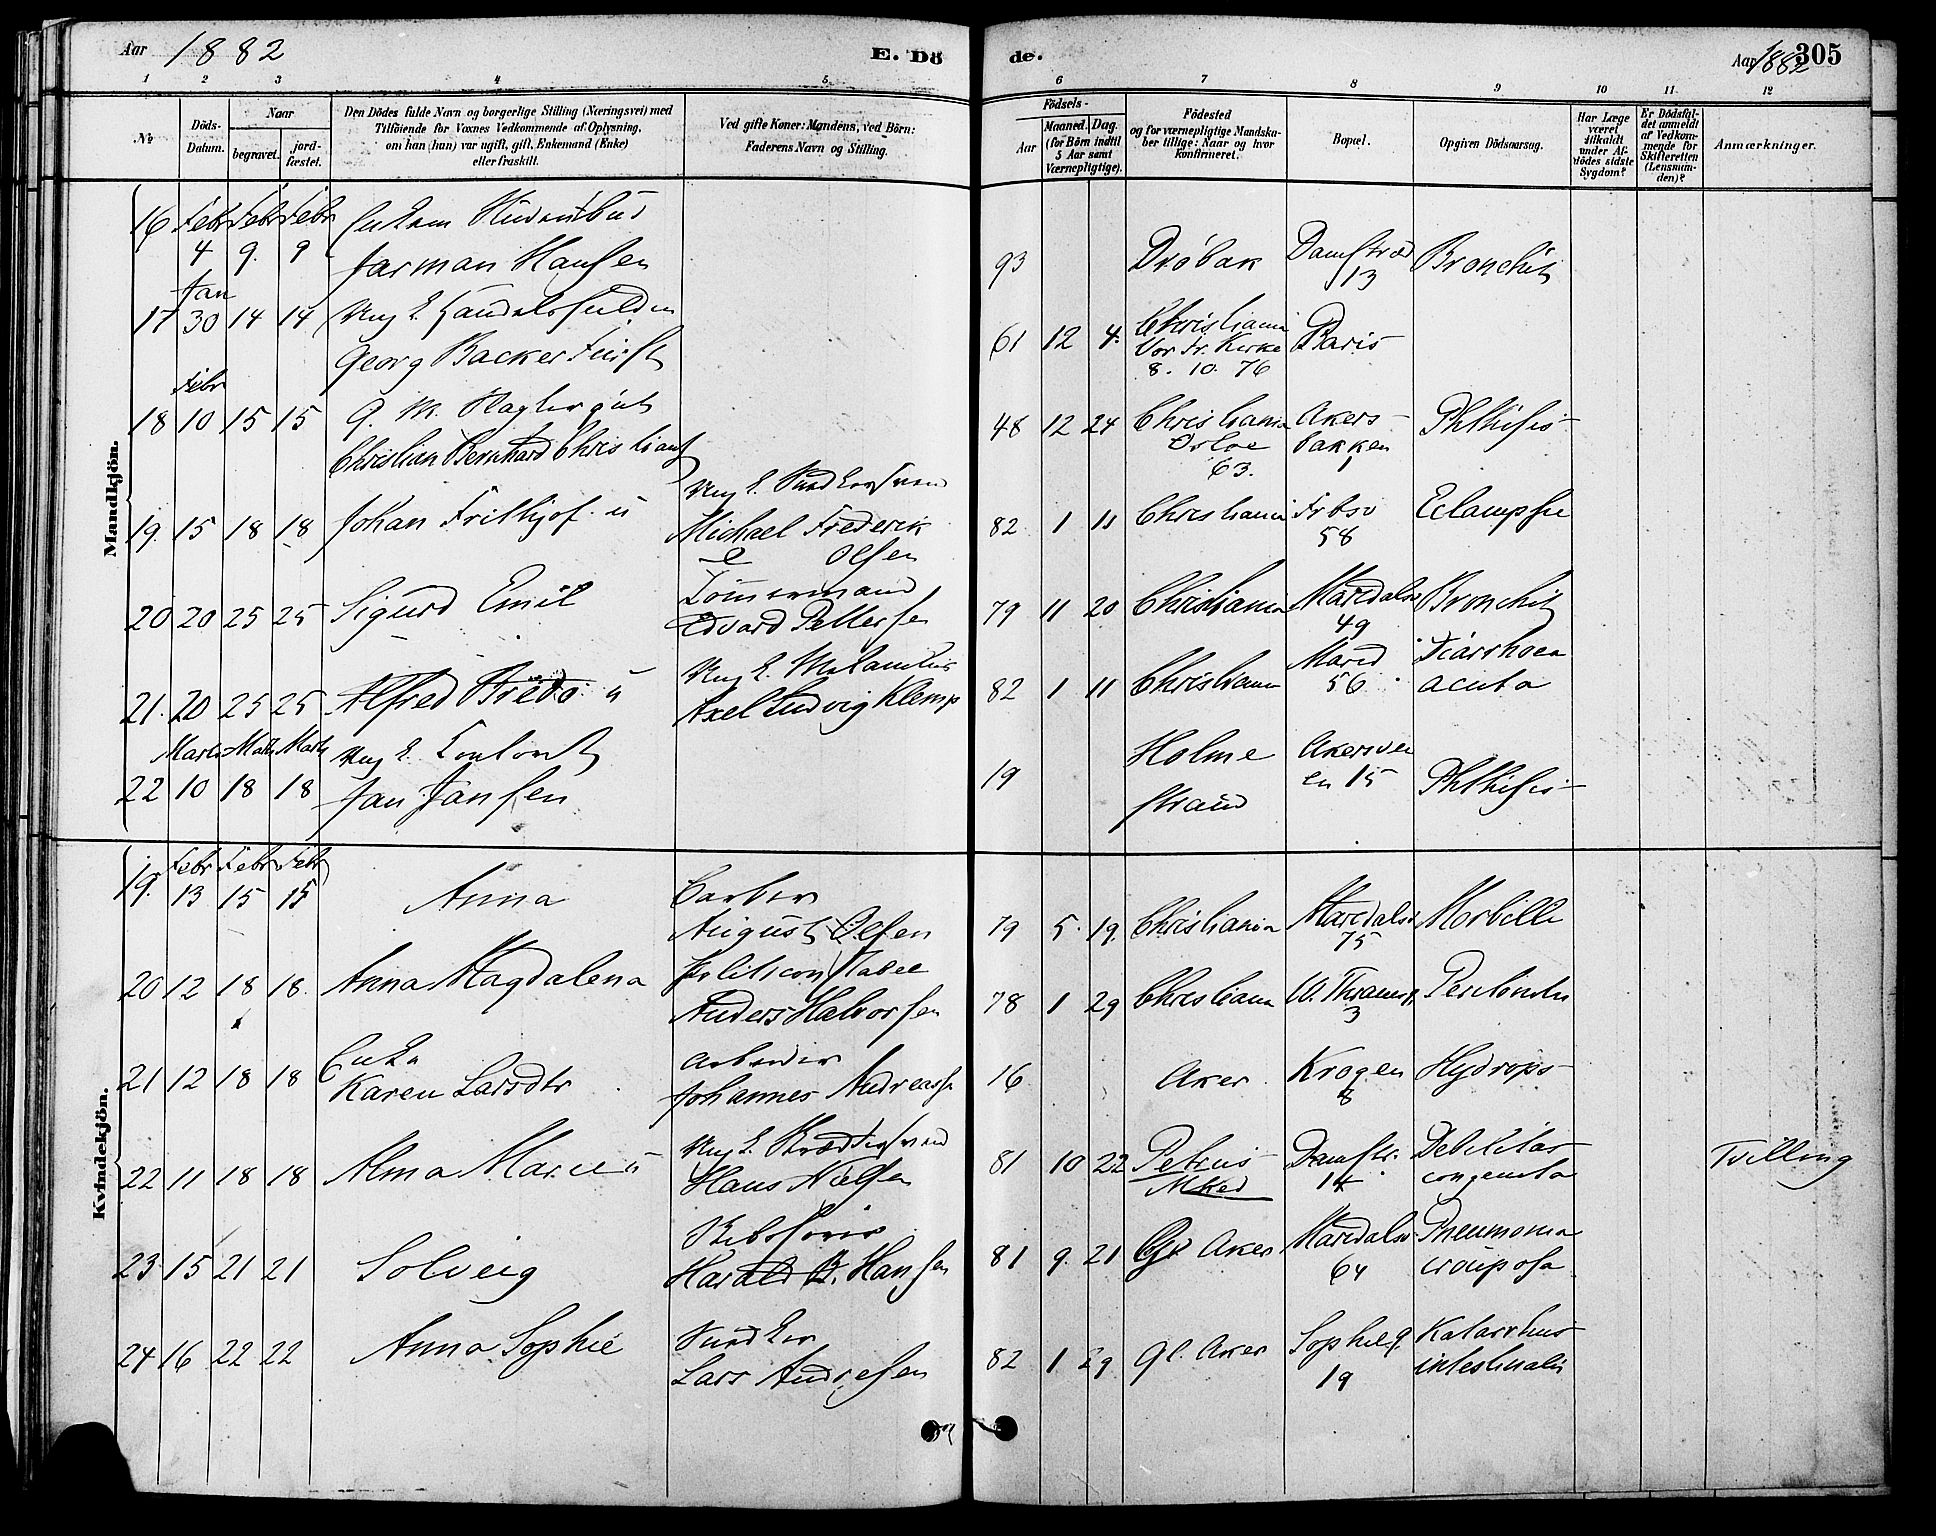 Aar 1882
E. Dö
de.
Aar 1882
305
1 2 3 4 5 6 7 8 9 10 11 12
No
Döds-
Datum.
Naar
begravet.
jord-
fæstet.
Den Dödes fulde Navn og borgerlige Stilling (Næringsvei) med
Tilföiende for Voxnes Vedkommende af Oplysning,
om han (hun) var ugift, gift, Enkemand (Enke)
eller fraskilt.
Ved gifte Koner: Mandens, ved Börn:
Faderens Navn og Stilling.
Födsels-
Aar
Maaned.
Dag.
(for Börn indtil
5 Aar samt
Værnepligtige).
Födested
og for værnepligtige Mandska-
ber tillige: Naar og hvor
konfirmeret.
Bopæl.
Opgiven Dödsaarsag.
Har Læge
været
tilkaldt
under Af-
dödes sidste
Sygdom?
Er Dödsfal-
det anmeldt
af Vedkom-
mende for
Skifteretten
(Lensman-
den)?
Anmærkninger.
Mandkjön.
16 Febr 4 Febr 9. Febr 9
Jarman Hansen
93 Dröbak Damstræd 13 Bronchit
17 Jan 30 14 14 Ung E.
Georg Backer Fürst
61 12 4. Christiania
Vor Fr. Kirke
8. 10. 76
Paris
18 Febr 10 15 15 G. M.
Christian Bernhard Christians
48 12 24 Christiania
Osloe
63.
Akers-
bakken
Phthisis
19. 15 18 18 Johan Frithjof u
Ung E.
Michael Frederik
Olsen
82 1 11 Christiania 58 Eclampsie
20 20 25 25 Sigurd Emil
Tömmermand
Edvard Pettersen
79 11 20 Christiania Maridalsv 49 Bronchit
21. 20 25 25 Alfred u
Ung E.
Axel Ludvig Klemp
82 1 11 Christiania Marid 56 Diarrhoea
acuta
22 Marts 10 Marts 18 Marts 18 Ung E. Kontorist
Jan Jansen
19 Holme
strand
Akersvei
en 15
Phthisis
Kvindekjön.
19. Febr 13 Febr 15 Febr 15 Anna
August Olsen
79 5. 19. Christiania Maridalsv. 75 Morbilli
20 12 18 18. Anna Magdalena
Politiconstabel
Anders Halvorsen
78 1 29 Christiania W. Thranesg. 3 Peritonitis
21 12 18 18 Enke
Karen Larsdtr
Arbeider
Johannes Andreass
16 Aker Krogen 8 Hydrops
22 11 18 18 Alma Marie u
Ung E.
Hans Nielsen
81 10 22 Petrus
Mked
Damstr. 14 Debilitas
congenita
Tvilling
23 15 21 21 Solveig
Harald B. Hansen
81 9. 21 Gl Aker Maridalsv 64 Pneumonia
crouposa
24 16 22 22 Anna Sophie
Snedker
Lars Andresen
82 1 29 Gl. Aker Sophieg. 19 Katarrhus
intestinalis